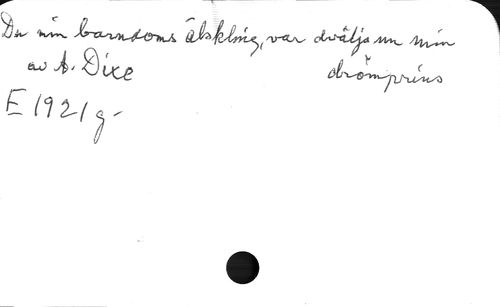 Du min barndoms älskling, var dväljs nu min
drömprins
av A. Dixe
E 1921 g-